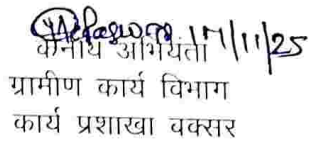 17/11/25
कनीय अभियंता
ग्रामीण कार्य विभाग
कार्य प्रशाखा बक्सर